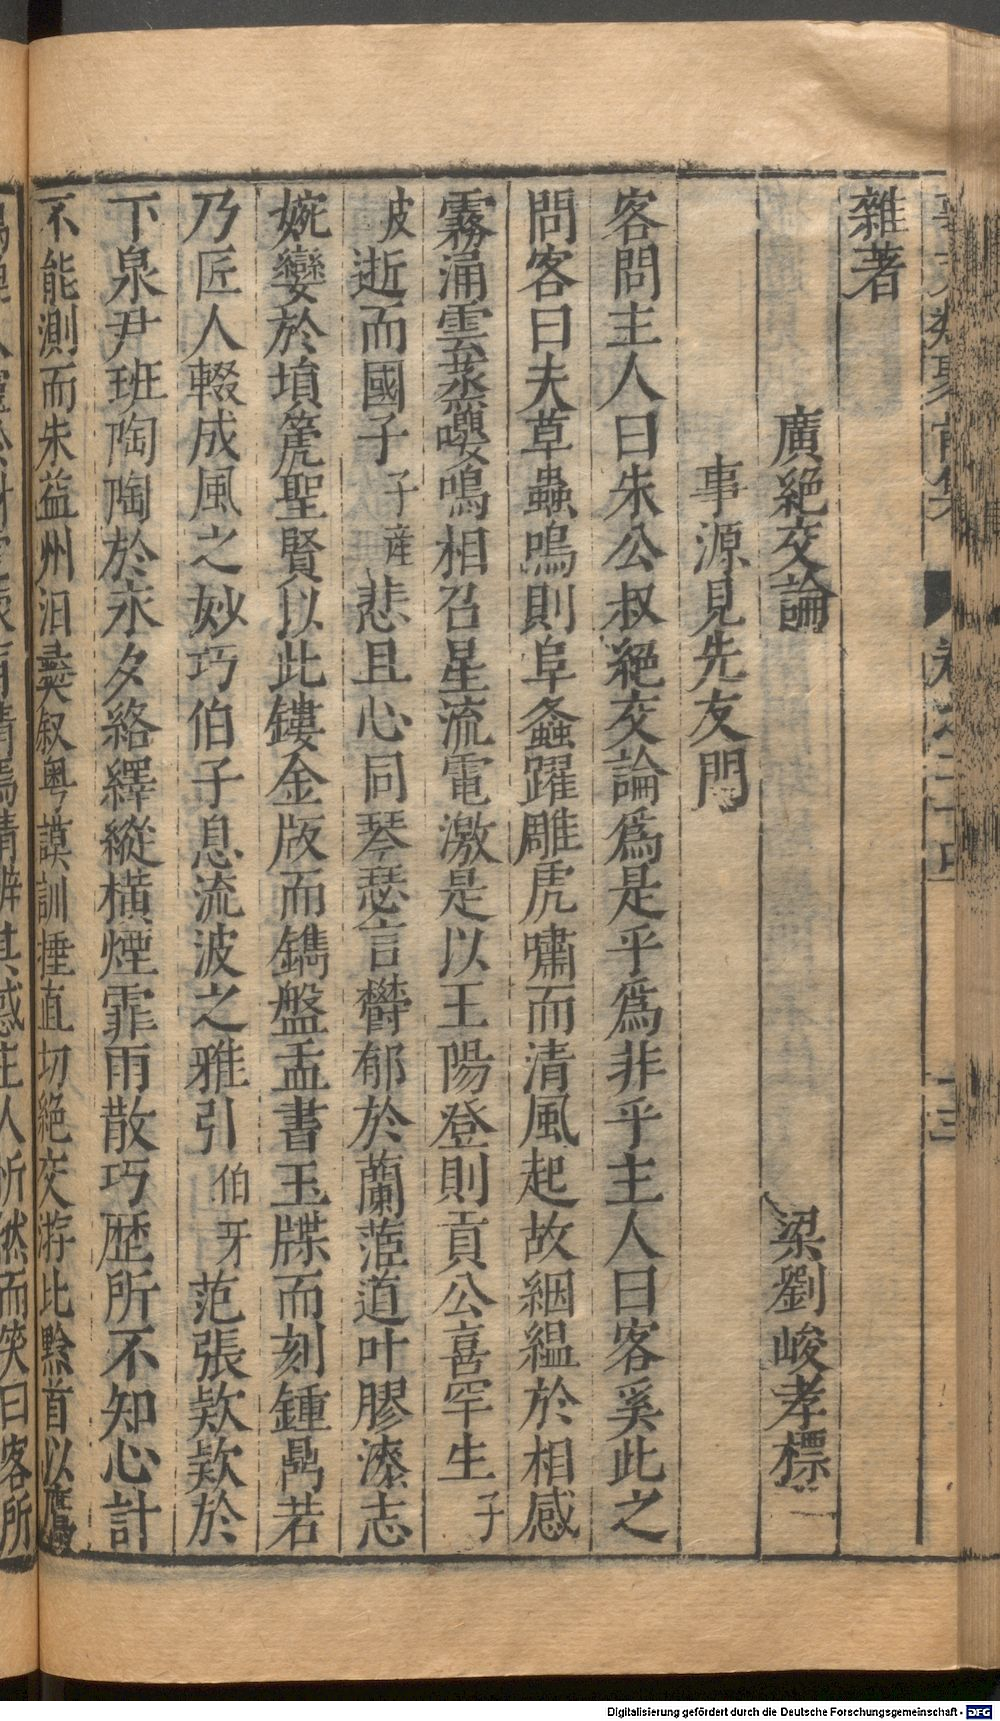 雜著
廣絕交論 梁劉峻孝標
事源見先友門
客問主人曰朱公叔絕交論爲是乎爲非乎主人曰客奚此之
問客曰夫草蟲鳴則阜螽躍雕虎嘯而清風起故絪縕於相感
霧涌雲蒸嚶鳴相召星流電激是以王陽登則貢公喜罕生子
皮逝而國子子產悲且心同琴瑟言鬱郁於蘭茝道叶膠漆志
婉孌於塤篪聖賢以此鏤金版而鐫盤盂書玉牒而刻鍾鼎若
乃匠人輟成風之妙巧伯子息流波之雅引伯牙范張欵欵於
下泉尹班陶陶於永夕絡繹縱橫煙霏雨散巧歷所不知心計
不能測而朱益州汨彝叙粵謨訓捶直切絕交游比黔首以鷹
人靈於 其惑主人听然而笑曰客所
Digitalisierung gefördert durch die Deutsche Forschungsgemeinschaft - DFG